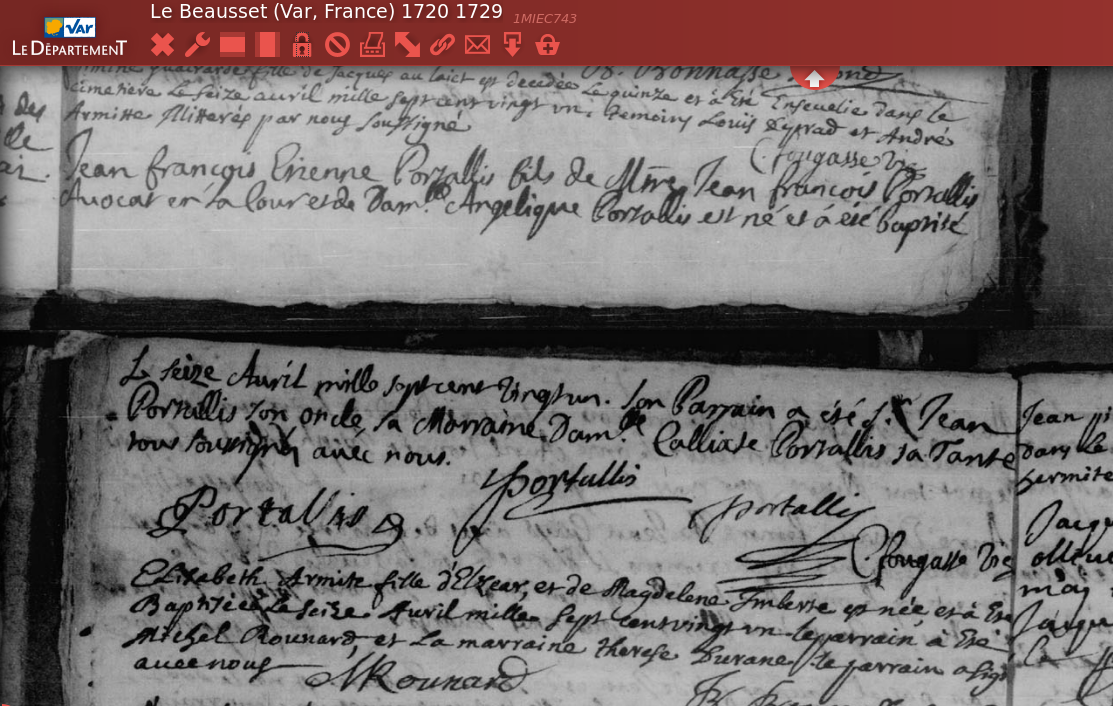 Le Beausset (Var, France) 1720 1729 1MIEC743
VAR
LE DÉPARTEMENT
fille de Jacques au laict est decedée Le quinze et à Eté Ensevelie dans le
cimetiere Le Seize avril mille sept cent vingt un, Temoins Louis Eyprad et André
Armitte Illitterés par nous Soussigné
Fougasse Vic
Jean françois Etienne Portallis fils de Mtre Jean françois Portallis
Avocat en la Cour et de Damlle Angelique Portallis est né et á eté baptisé
Le seize Avril mille sept cent vingt un. Son Parrain a été Sr Jean
Portallis son oncle, sa Marraine Damlle Calliste Portallis sa Tante
tous soussignés avec nous.
Portallis
Portallis
Portallis
Fougasse Vic
Elisabeth Armite fille d'Elzear, et de Magdelene Imberte est née et à Eté
Baptisée Le Seize Avril mille Sept cent vingt un le parrain à Eté
Michel Rounard, et La marraine therese Durane le parrain a sigé
avec nous
MRounard